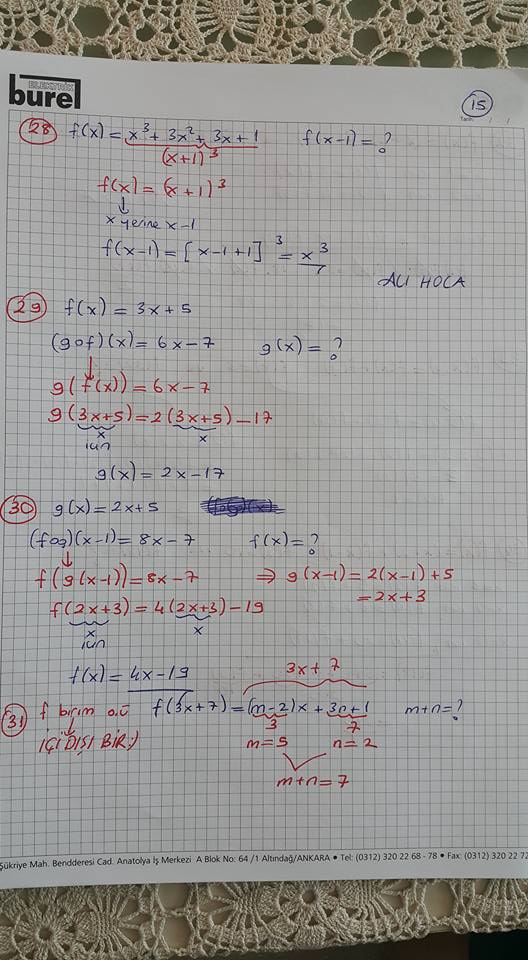 ELEKTRİK
burel
15
Tarih: / /
28 f(x) = x³ + 3x² + 3x + 1 f(x-1) = ?
(x+1)³
f(x) = (x+1)³
↓
x yerine x-1
f(x-1) = [x-1+1]³ = x³
ALİ HOCA
29 f(x) = 3x+5
(gof)(x) = 6x-7 g(x) = ?
↓
g(f(x)) = 6x-7
g(3x+5) = 2(3x+5) - 17
x x
için
g(x) = 2x-17
30 g(x) = 2x+5
(fog)(x-1) = 8x-7 f(x) = ?
↓
f(g(x-1)) = 8x-7 ⇒ g(x-1) = 2(x-1)+5
f(2x+3) = 4(2x+3) - 19 = 2x+3
x x
için
f(x) = 4x-19
3x+7
31 f birim o.ü f(3x+7) = (m-2)x + 3n+1 m+n = ?
↓ 3 7
İÇİ DIŞI BİR:) m=5 n=2
m+n=7
Şükriye Mah. Bendderesi Cad. Anatolya İş Merkezi A Blok No: 64 /1 Altındağ/ANKARA • Tel: (0312) 320 22 68 - 78 • Fax: (0312) 320 22 72